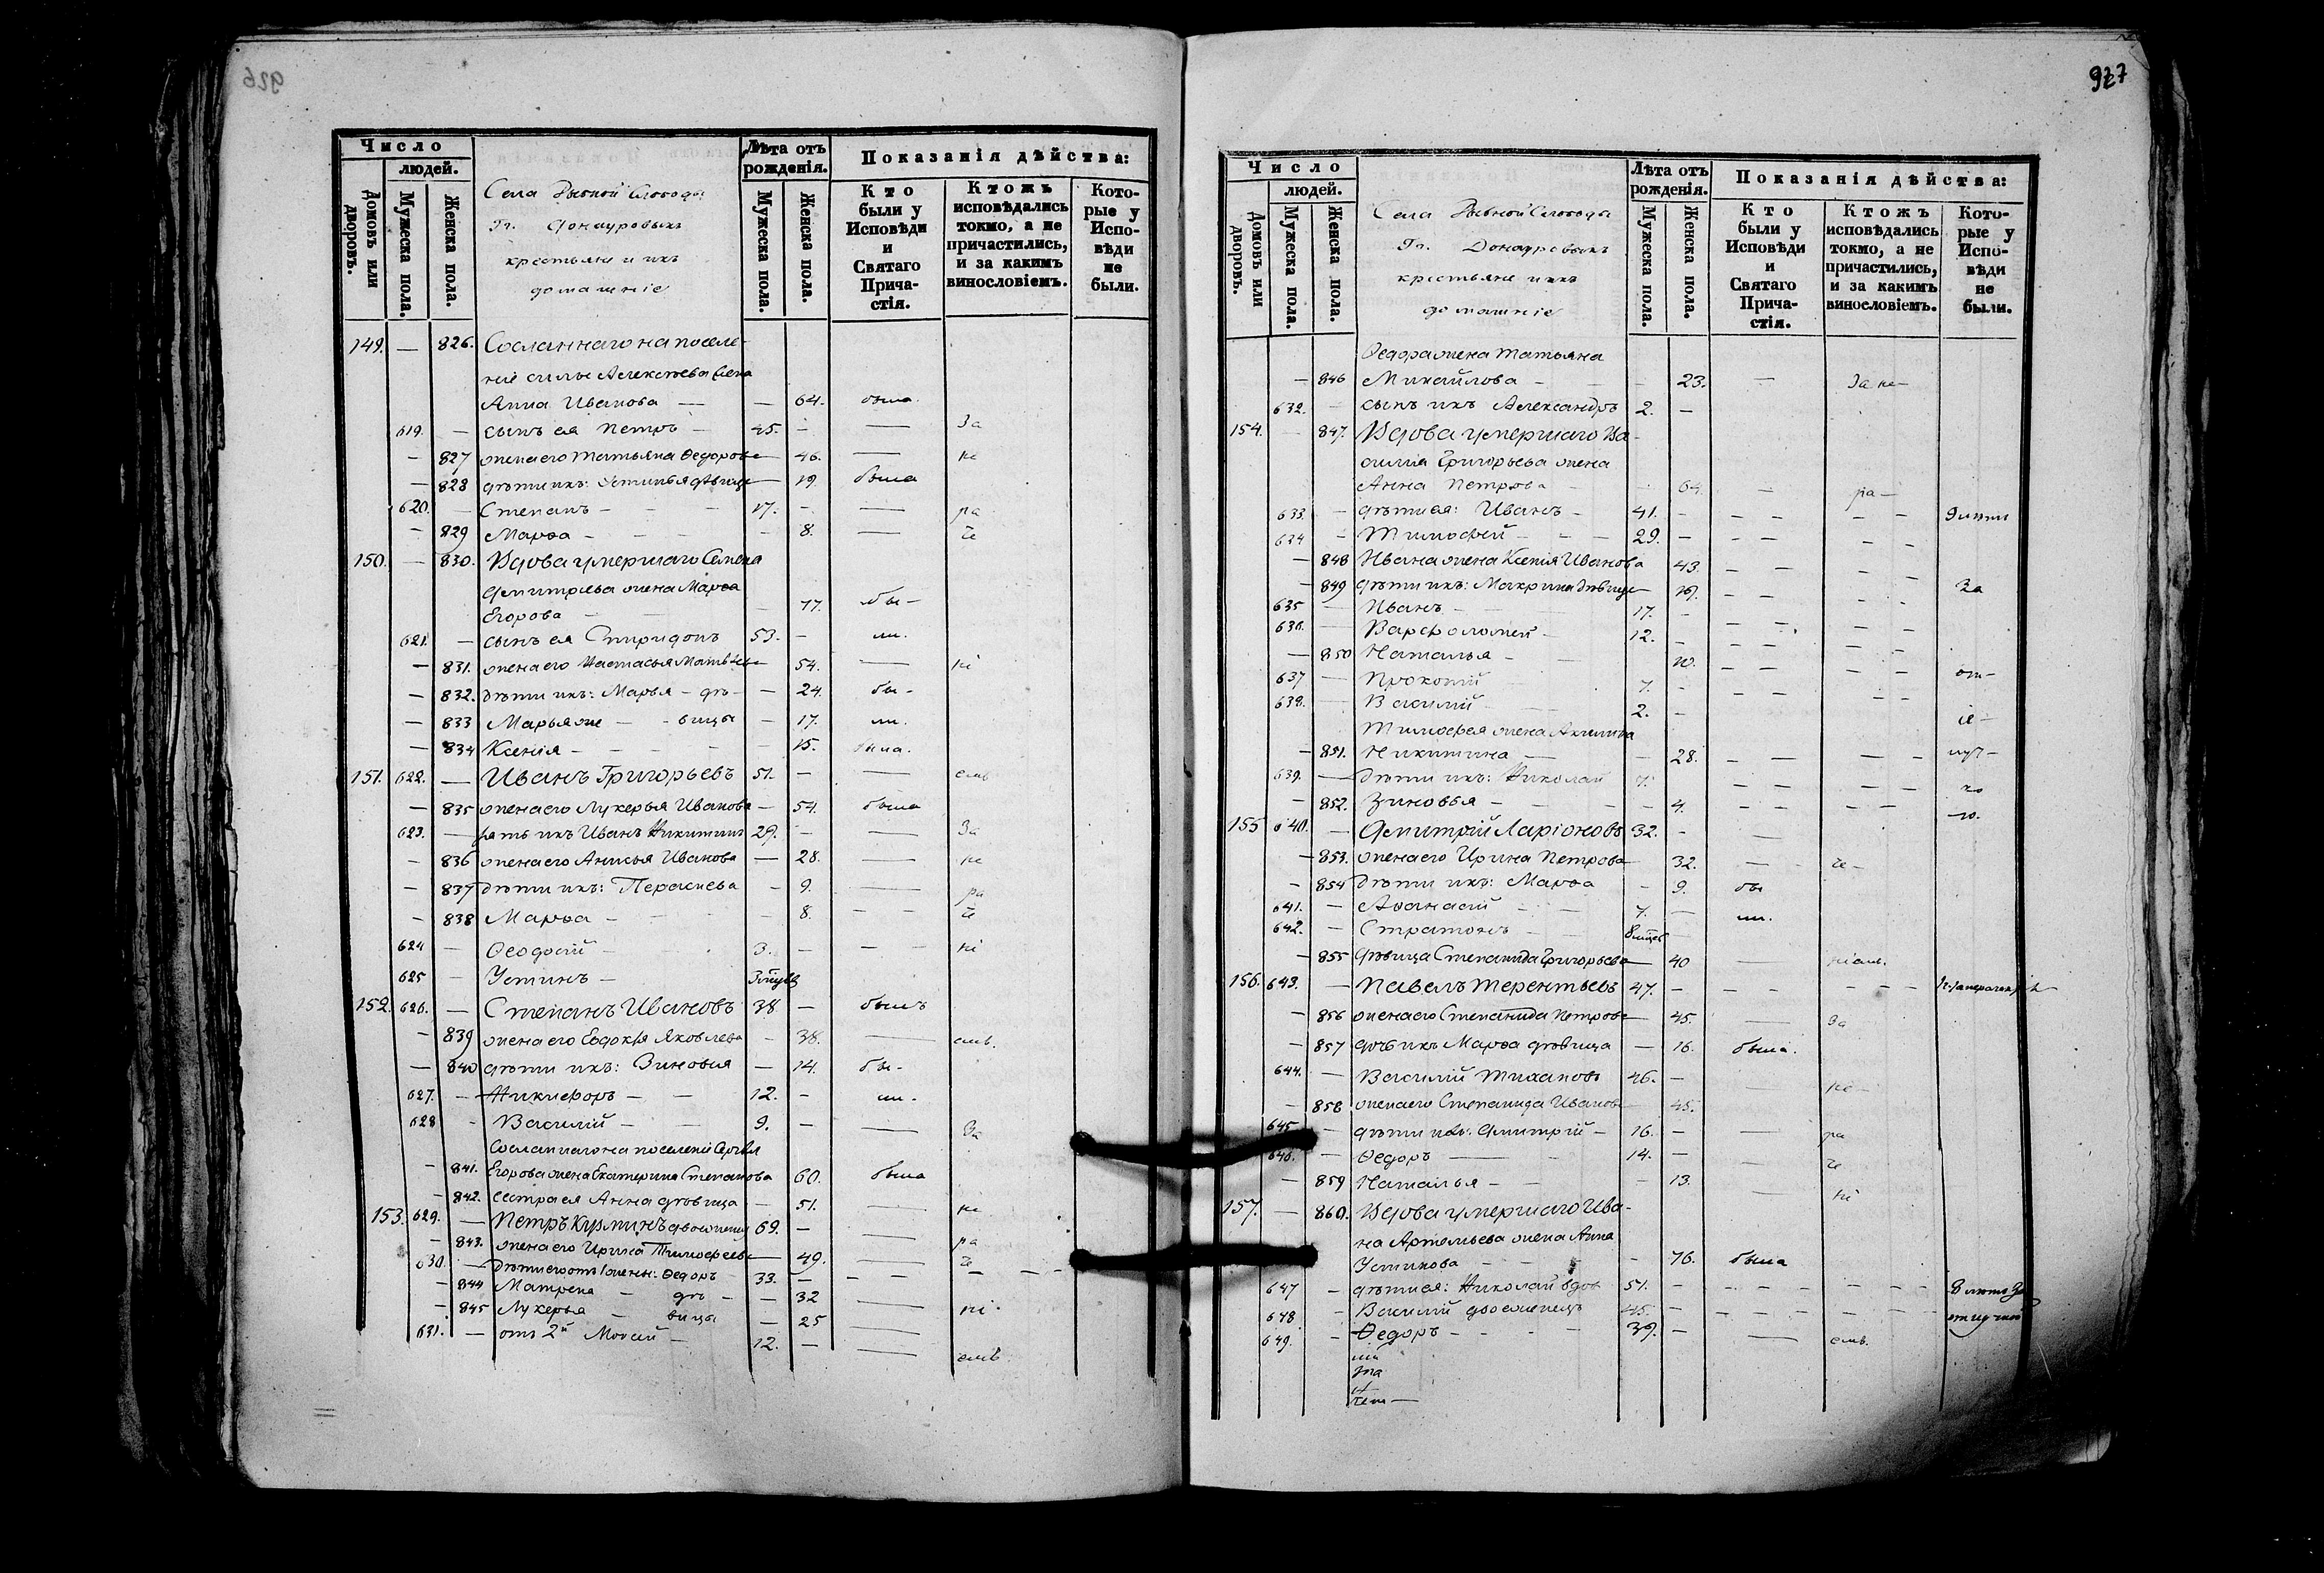 926
Число
людей.
Домовъ или дворовъ.
Мужеска пола.
Женска пола.
Села Рыбной Слободы
Гг. Донауровыхъ
крестьяне и ихъ
домашніе
Лѣта отъ рожденія.
Мужеска пола.
Женска пола.
Показанія дѣйства:
Кто были у Исповѣди и Святаго Причастія.
Ктожъ исповѣдались токмо, а не причастились, и за какимъ винословіемъ.
Которые у Исповѣди не были.
149. — 826. Сосланнаго на поселе-
ніе Алексѣева жена
Анна Иванова — — 64. была
619. — сынъ ея Петръ — 45. - — За
— 827 жена его Татьяна Ѳедорова — 46. — не
— 828 дѣти ихъ: Устинья дѣвица — 19. была
620. — Степанъ - - - 17. - — ра
— 829 Марѳа - - - 8. — че
150. — 830. Вдова умершаго Семена
Дмитріева жена Марѳа
Егорова — — 77. бы-
621. — сынъ ея Спиридонъ 53. - ли.
— 831. жена его Настасья Матвѣева — 54. — ні
— 832. дѣти ихъ: Марья - дѣ- — 24. бы-
— 833 Марья же - - вицы — 17. ли.
— 834 Ксенія - - - — 15. была.
151. 622. — Иванъ Григорьевъ 51. - — емъ
— 835 жена его Лукерья Иванова — 54. была
623. — зять ихъ Иванъ Никитинъ 29. - — За
— 836 жена его Анисья Иванова — 28. — не
— 837 дѣти ихъ: Парасцева - 9. — ра
— 838 Марѳа - - 8. - - че
624 — Ѳеодосій - 3. - - - ні
625 — Устинъ -
152. 626. — Степанъ Ивановъ 38 - былъ
— 839 жена его Евдокія Яковлева - 38. — емъ.
— 840 дѣти ихъ: Зиновья — 14. бы-
627. — Никифоръ - - 12. - ли.
628 - Василій - - 9. - — За
Сосланнаго на поселеніе
— 841. Егорова жена Екатерина Степанова 60. была
— 842. сестра ея Анна дѣвица — 51. — не
153. 629. — Петръ Кузминъ двоеженецъ 69. - — ра
— 843. жена его Ирина Тимоѳеева — 49. — че
630. — Дѣти его отъ 1 жены: Ѳедоръ 33. - - - - - -
— 844 Матрена - дѣ- — 32 — ні-
— 845 Лукерья - вицы — 25 —
631. — отъ 2й Моисей - 12. - — емъ.
927
Число
людей.
Домовъ или дворовъ.
Мужеска пола.
Женска пола.
Села Рыбной Слободы
Гг. Донауровыхъ
крестьяне и ихъ
домашніе
Лѣта отъ рожденія.
Мужеска пола.
Женска пола.
Показанія дѣйства:
Кто были у Исповѣди и Святаго Причастія.
Ктожъ исповѣдались токмо, а не причастились, и за какимъ винословіемъ.
Которые у Исповѣди не были.
Ѳедора жена Татьяна
— 846 Михайлова - - 23. — За не-
632. — сынъ ихъ Александръ 2. -
154. — 847. Вдова умершаго Ва-
силія Григорьева жена
Анна Петрова - 64. — ра-
633. — дѣти ея: Иванъ - 41. - - - - -
634 - Тимоѳей - - 29. - - - - -
— 848 Ивана жена Ксенія Иванова 43. - - -
— 849 дѣти ихъ: Макрина дѣвица 19. - - - За
635 — Иванъ - 17. - - -
636. — Варѳоломей - 12. - - -
— 850 Наталья - 10. - - -
637 — Прокопій 7. - - - от-
638. — Василій 2. -
Тимоѳея жена Акилина
— 851. Никитина — - 28. - - - -
639. — Дѣти ихъ: Николай 7. - - -
— 852. Зиновья - - 4. - - - -
155 640. — Дмитрій Ларіоновъ 32. - —
— 853. жена его Ирина Петрова — 32. — че-
— 854 Дѣти ихъ: Марѳа - 9. бы
641. — Аѳанасій - 7. — ли.
642. — Стратонъ -
— 855 дѣвица Степанида Григорьева — 40 — ніемъ.
156. 643. — Павелъ Терентьевъ 47. - - - - - -
— 856 жена его Степанида Петрова — 45. — За
— 857 дочь ихъ Марѳа дѣвица — 16. была.
644. — Василій 46. - — не-
— 858 жена его Степанида Иванова — 45.
645 — дѣти ихъ: Дмитрій - 16. - — ра
646. — Ѳедоръ — 14. - — че
— 859 Наталья - - 13. — ні
157. — 860. Вдова умершаго Ива-
на Артемьева жена Анна
Устинова - - - 76. была
647 - дѣти ея: Николай вдов 51. - - - - - -
648 - Василій двоеженецъ 45. - - - - - -
649. - Ѳедоръ - - - 39. - — емъ.